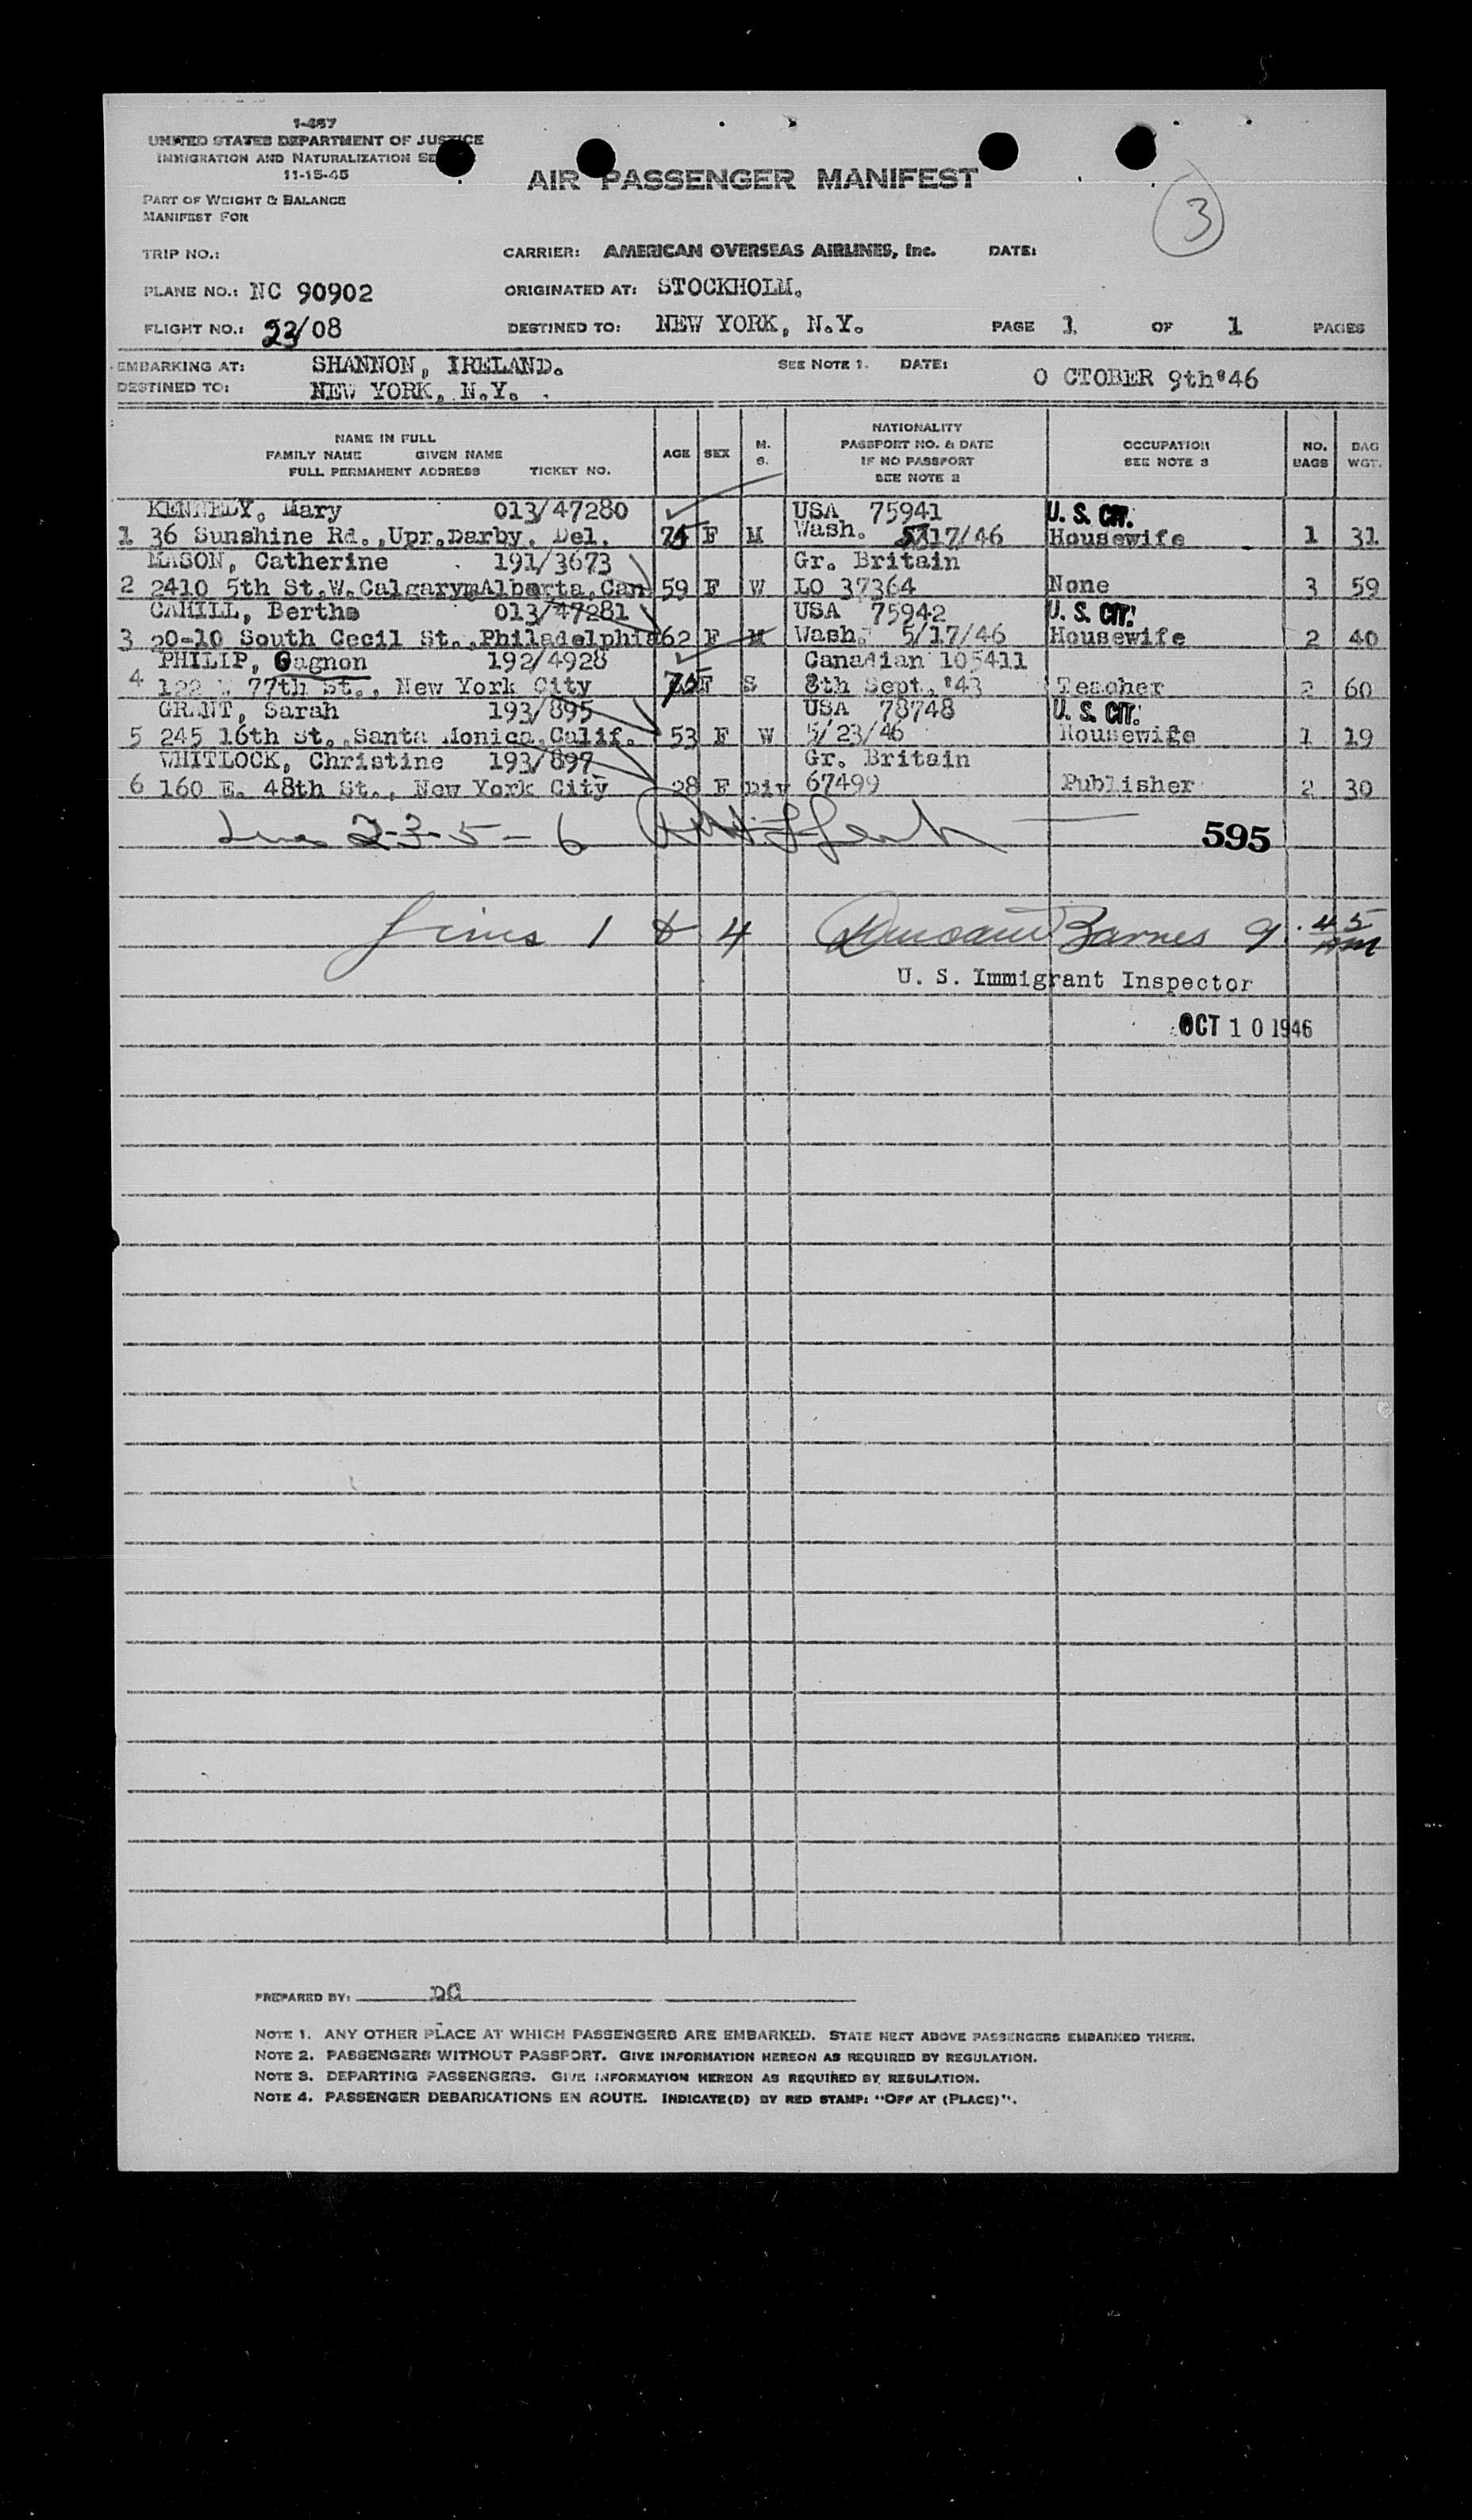 1-467
UNITED STATES DEPARTMENT OF JUSTICE
IMMIGRATION AND NATURALIZATION SE
11-15-45
AIR PASSENGER MANIFEST
PART OF WEIGHT & BALANCE
MANIFEST FOR
3
TRIP NO.: CARRIER: AMERICAN OVERSEAS AIRLINES, Inc. DATE:
PLANE NO.: NC 90902 ORIGINATED AT: STOCKHOLM.
FLIGHT NO.: 23/08 DESTINED TO: NEW YORK, N.Y. PAGE 1 OF 1 PAGES
EMBARKING AT: SHANNON, IRELAND. SEE NOTE 1. DATE: O CTOBER 9th'46
DESTINED TO: NEW YORK, N.Y. .
NAME IN FULL
FAMILY NAME GIVEN NAME
FULL PERMANENT ADDRESS TICKET NO.
AGE SEX M. S.
NATIONALITY
PASSPORT NO. & DATE
IF NO PASSPORT
SEE NOTE 2
OCCUPATION
SEE NOTE 3
NO. BAGS
BAG WGT.
KENNEDY, Mary 013/47280 USA 75941 U. S. CIT.
1 36 Sunshine Rd.,Upr.Darby, Del. 75 F M Wash. 5/17/46 Housewife 1 31
MASON, Catherine 191/3673 Gr. Britain
2 2410 5th St.W.Calgary Alberta,Can 59 F W LO 37364 None 3 59
CAHILL, Bertha 013/47281 USA 75942 U. S. CIT.
3 20-10 South Cecil St.,Philadelphia 62 F M Wash. 5/17/46 Housewife 2 40
PHILIP, Gagnon 192/4928 Canadian 105411
4 122 77th St., New York City F S 8th Sept.,'43 Teacher 2 60
GRANT, Sarah 193/895 USA 78748 U. S. CIT.
5 245 16th St.,Santa Monica,Calif. 53 F W 5/23/46 Housewife 1 19
WHITLOCK, Christine 193/897 Gr. Britain
6 160 E. 48th St., New York City 28 F Div 67499 Publisher 2 30
2-3-5-6
595
Lines 1 & 4 Barnes 9:45 AM
U. S. Immigrant Inspector
OCT 10 1946
PREPARED BY: DC
NOTE 1. ANY OTHER PLACE AT WHICH PASSENGERS ARE EMBARKED. STATE NEXT ABOVE PASSENGERS EMBARKED THERE.
NOTE 2. PASSENGERS WITHOUT PASSPORT. GIVE INFORMATION HEREON AS REQUIRED BY REGULATION.
NOTE 3. DEPARTING PASSENGERS. GIVE INFORMATION HEREON AS REQUIRED BY REGULATION.
NOTE 4. PASSENGER DEBARKATIONS EN ROUTE. INDICATE(D) BY RED STAMP: "OFF AT (PLACE)".